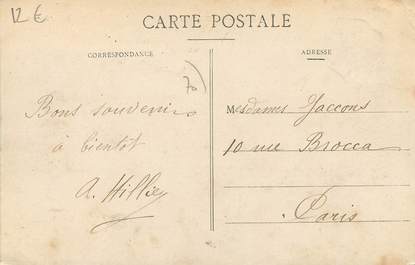 12 €
CARTE POSTALE
CORRESPONDANCE
ADRESSE
Bons souvenirs
à bientôt
A. Hillie
Mesdames Jaccons
10 rue Brocca
Paris